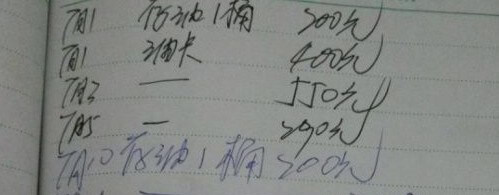 7月1 存油1桶 200元
7月1 油卡 400元
7月2 — 550元
7月5 — 290元
7月10 存油1桶 200元